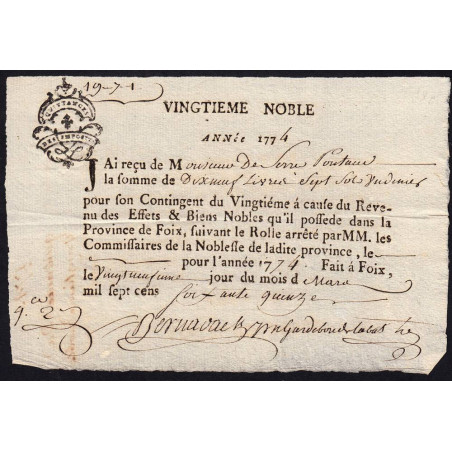 19-7-1
QUITTANCES
DES IMPOSTS
VINGTIEME NOBLE
ANNÉE 1774
JAi reçu de Monsieur De Serre Pontaut
la somme de Dixneuf Livres Sept Sols Undenier
pour son Contingent du Vingtiéme à cause du Reve-
nu des Effets & Biens Nobles qu'il possede dans la
Province de Foix, suivant le Rolle arrêté par MM. les
Commissaires de la Noblesse de ladite province, le
pour l'année 1774 Fait à Foix,
le Vingtneufieme jour du mois d Mars
mil sept cens soixante quinze